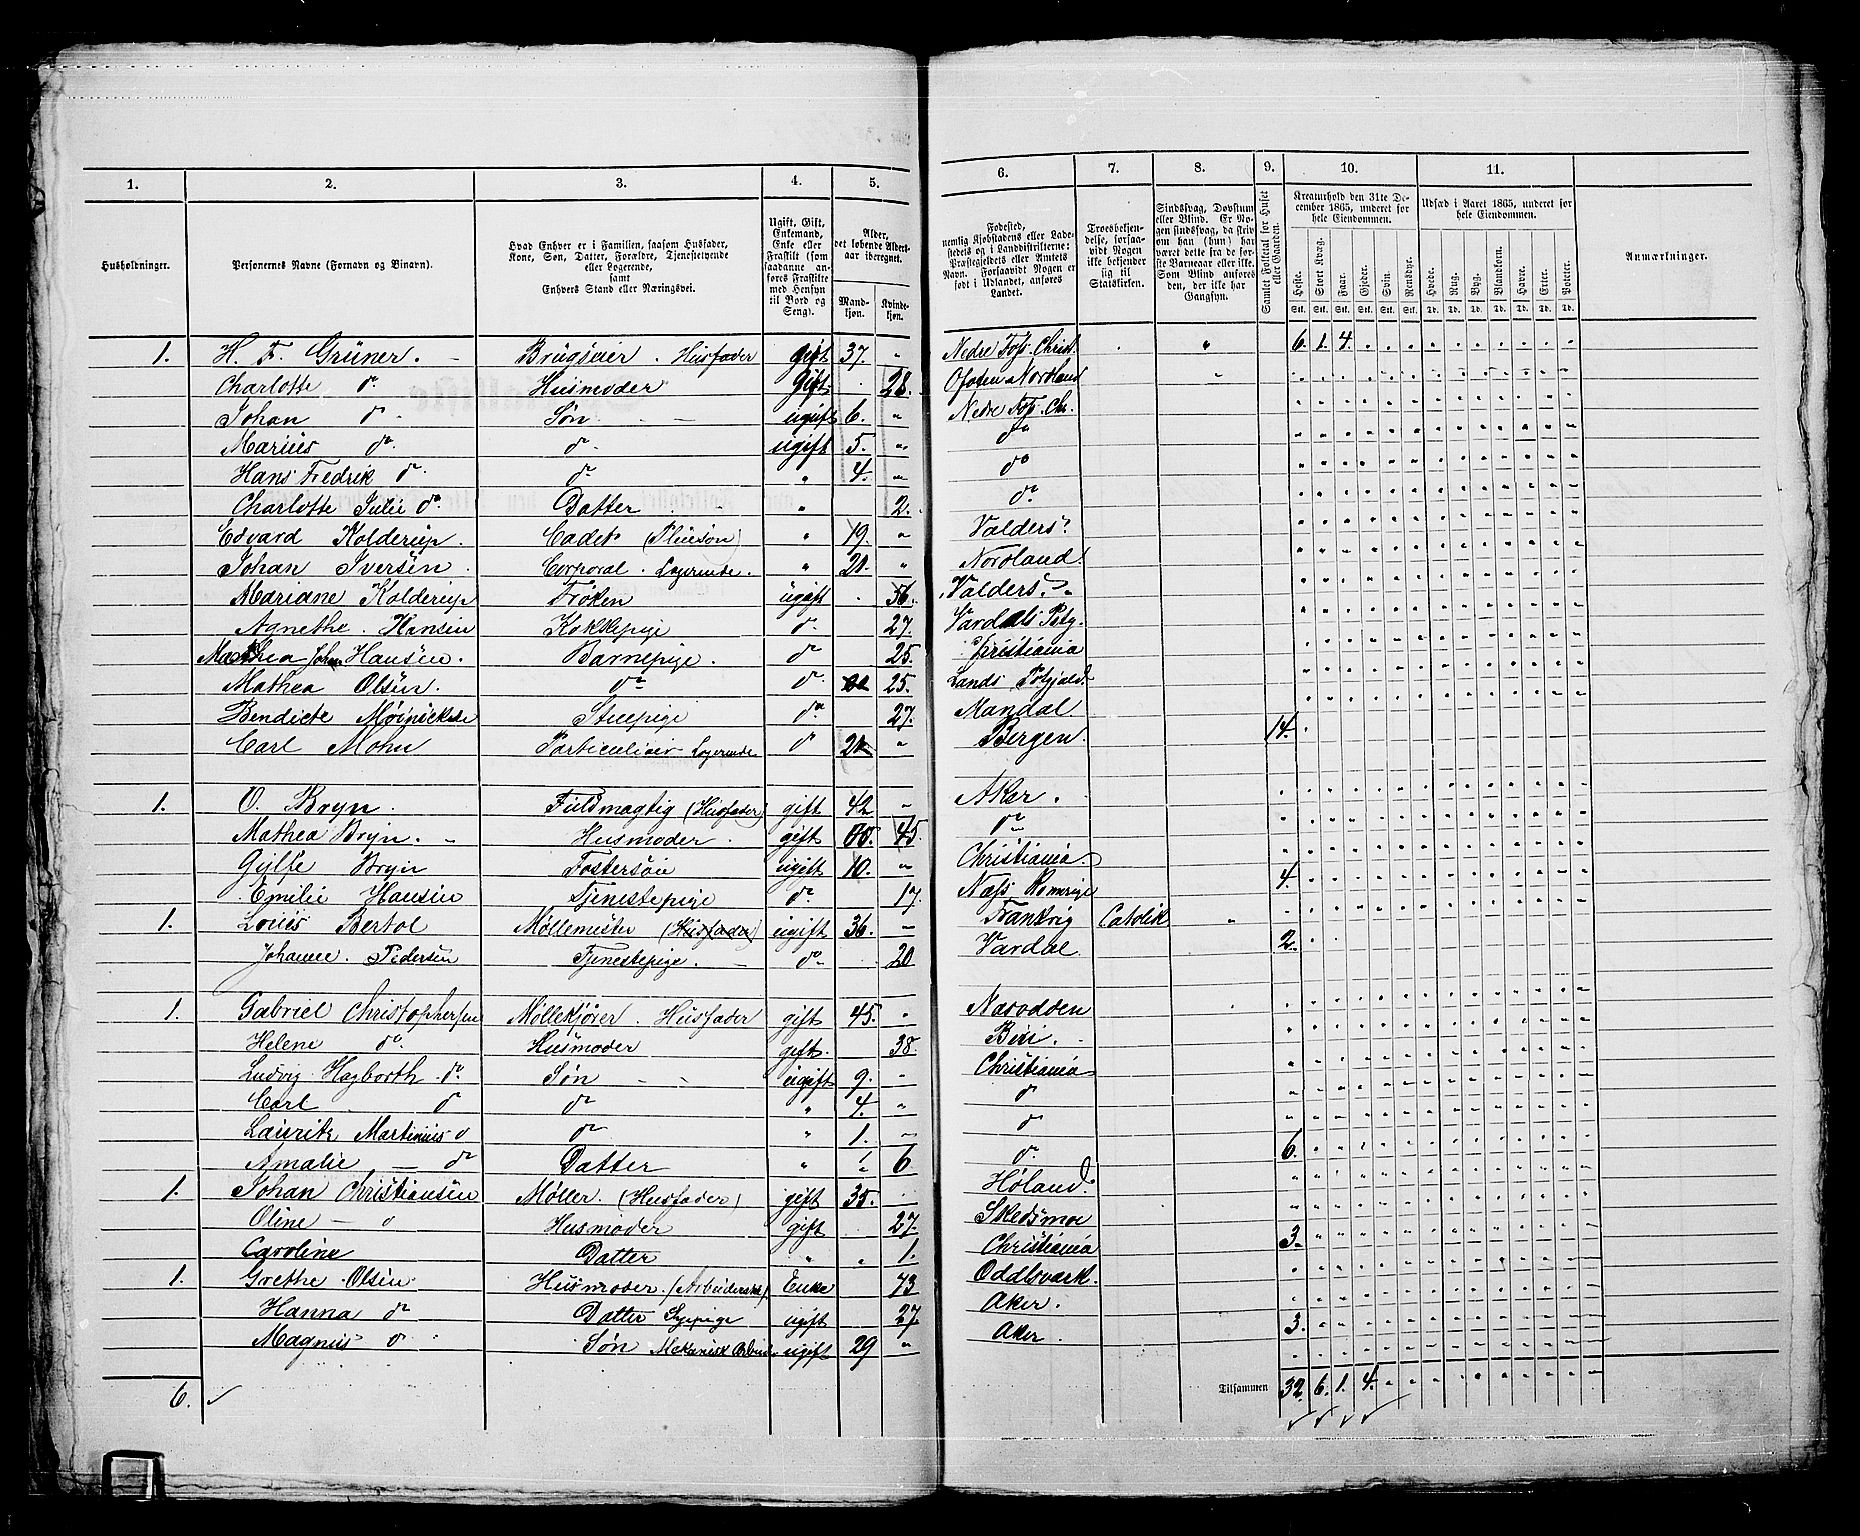 1. 2. 3. 4. 5. 6. 7. 8. 9. 10. 11.
Husholdninger.
Personernes Navne (Fornavn og Binavn).
Hvad Enhver er i Familien, saasom Husfader, Kone, Søn, Datter, Forældre, Tjenestetyende eller Logerende, samt Enhvers Stand eller Næringsvei.
Ugift, Gift, Enkemand, Enke eller Fraskilt (som saadanne anføres Fraskilte med Hensyn til Bord og Seng).
Alder, det løbende Aldersaar iberegnet.
Mandkjøn. Kvindekjøn.
Fødested, nemlig Kjøbstadens eller Ladestedets og i Landdistrikterne: Præstegjeldets eller Amtets Navn. Forsaavidt Nogen er født i Udlandet, anføres Landet.
Troesbekjendelse, forsaavidt Nogen ikke bekjender sig til Statskirken.
Sindssvag, Døvstum eller Blind. Er Nogen sindssvag, da skriv om han (hun) har været dette fra de første Barneaar eller ikke. Som Blind anføres den, der ikke har Gangsyn.
Samlet Folketal for Huset eller Gaarden.
Kreaturhold den 31te December 1865, underet for hele Eiendommen.
Heste. Stort Kvæg. Faar. Gjeder. Svin. Rensdyr.
Stk. Stk. Stk. Stk. Stk. Stk.
Udsæd i Aaret 1865, underet for hele Eiendommen.
Hvede. Rug. Byg. Blandkorn. Havre. Erter. Poteter.
Td. Td. Td. Td. Td. Td. Td.
Anmærkninger.
1. H. F. Grüner. Brugseier. Husfader gift 37. " Nedre Foss. Christ. " 6. 1. 4.
Charlotte do Husmoder gift 28. Ofoten Nordland
Johan do Søn ugift 6. " Nedre Foss. Chr.
Marius do. do. ugift 5. " do
Hans Fredrik do. do " 4. " do
Charlotte Julie do. Datter " 2. do.
Edvard Kolderup. Cadet (Pleiesøn) " 19. " Valders.
Johan Iversen. Corporal. Logerende. " 20. " Nordland.
Mariane Kolderup Frøken ugift 56. Valders.
Agnethe. Hansen Kokkepige do. 27. Vardals Pstg.
Mathea Joh. Hansen. Barnepige. do 25. Christiania
Mathea Olsen. do do. 25. Lands Pstgjald.
Bendicte Stuepige do. 27. Mandal.
Carl Mohn Particulier Logerende do " Bergen. 14.
1. O. Bryn. Fuldmægtig (Husfader) gift 42 " Aker.
Mathea Bryn. Husmoder. gift 45. do
Gylfe Bryn Fostersøn ugift 10. " Christiania
Emilie Hansen Tjenestepige do. 17. Næss Romerige 4.
1. Louis Bertol Møllemester (Husfader) ugift 36. Frankrig Catolik "
Johanne. Pedersen Tjenestepige. do 20 Vardal. 2.
1. Gabriel Christophersen Møllekjører. Husfader gift 45. " Næsodden
Helene do. Husmoder gift. 38. Biri.
Ludvig Hagborth do. Søn ugift 9. " Christiania
Carl do do " 4. " do
Lauritz Martinius do do " 1. do
Amalie do Datter " 6. do 6.
1. Johan Christiansen Møller. (Husfader) gift 35. Høland.
Oline do Husmoder gift 27. Skedsmoe
Caroline Datter " 1. Christiania 3.
1. Grethe Olsen. Husmoder. Enke 73 Oddlsværk.
Hanna do Datter Sypige ugift 27. Aker.
Magnus do Søn Mekanisk ugift 29 " Aker. 3.
6. Tilsammen 32. 6. 1. 4.